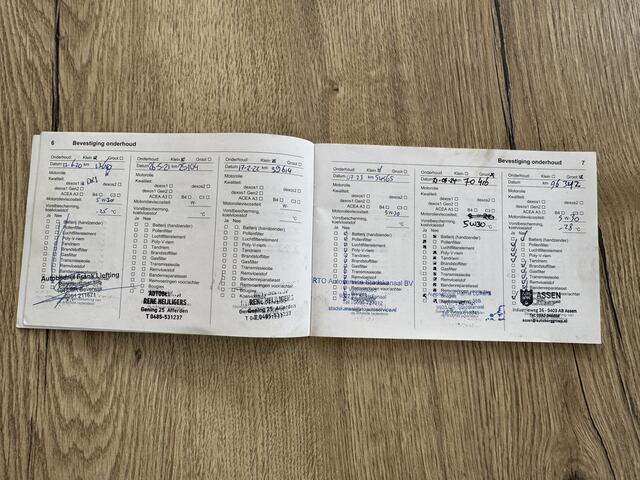 6 Bevestiging onderhoud
Onderhoud: Klein Groot
Datum km
Motorolie:
Kwaliteit:
dexos1 dexos2
dexos1 Gen2
ACEA A3 B4 C3
Motorolieviscositeit:
5W30
Vorstbescherming,
koelvloeistof
-25 °C
Ja Nee
Batterij (handzender)
Pollenfilter
Luchtfilterelement
Poly-V-riem
Tandriem
Brandstoffilter
Gasfilter
Transmissieolie
Remvloeistof
Autobedrijf Frank Liefting
Onderhoud: Klein Groot
Datum 26-5-21 km 25104
Motorolie:
Kwaliteit:
dexos1 dexos2
dexos1 Gen2
ACEA A3 B4 C3
Motorolieviscositeit:
W-
Vorstbescherming,
koelvloeistof
°C
Ja Nee
Batterij (handzender)
Pollenfilter
Luchtfilterelement
Poly-V-riem
Tandriem
Brandstoffilter
Gasfilter
Transmissieolie
Remvloeistof
Bandenreparatieset
Remvoeringen voor/achter
Bougies
AUTOBEDR
RENE HEILIGERS
Gening 25 Afferden
T 0485-531237
Onderhoud: Klein Groot
Datum 17-2-22 km 39614
Motorolie:
Kwaliteit:
dexos1 dexos2
dexos1 Gen2
ACEA A3 B4 C3
Motorolieviscositeit:
W-
Vorstbescherming,
koelvloeistof
°C
Ja Nee
Batterij (handzender)
Pollenfilter
Luchtfilterelement
Poly-V-riem
Tandriem
Brandstoffilter
Gasfilter
Transmissieolie
Remvloeistof
Bandenreparatieset
Remvoeringen voor/achter
RENE HEILIGERS
Gening 25 Afferden
T 0485-531237
Bevestiging onderhoud 7
Onderhoud: Klein Groot
Datum 07-23 km 54565
Motorolie:
Kwaliteit:
dexos1 dexos2
dexos1 Gen2
ACEA A3 B4 C3
Motorolieviscositeit:
5W30
Vorstbescherming,
koelvloeistof
°C
Ja Nee
Batterij (handzender)
Pollenfilter
Luchtfilterelement
Poly-V-riem
Tandriem
Brandstoffilter
Gasfilter
Transmissieolie
Remvloeistof
RTO Autoservice Stadskanaal BV
Onderhoud: Klein Groot
Datum km
Motorolie:
Kwaliteit:
dexos1 dexos2
dexos1 Gen2
ACEA A3 B4 C3
Motorolieviscositeit:
Vorstbescherming,
koelvloeistof
5W30 °C
Ja Nee
Batterij (handzender)
Pollenfilter
Luchtfilterelement
Poly-V-riem
Tandriem
Brandstoffilter
Gasfilter
Transmissieolie
Remvloeistof
Bandenreparatieset
Onderhoud: Klein Groot
Datum km 96342
Motorolie:
Kwaliteit:
dexos1 dexos2
dexos1 Gen2
ACEA A3 B4 C3
Motorolieviscositeit:
5W30
Vorstbescherming,
koelvloeistof
-28 °C
Ja Nee
Batterij (handzender)
Pollenfilter
Luchtfilterelement
Poly-V-riem
Tandriem
Brandstoffilter
Gasfilter
Transmissieolie
Remvloeistof
Bandenreparatieset
ASSEN
Industrieweg 36 - 9403 AB Assen